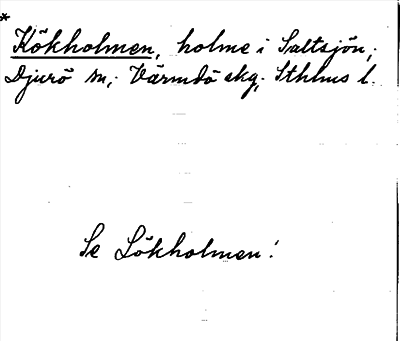 *
Kökholmen, holme i Saltsjön,
Djurö sn, Värmdö skg, Sthlms l.
Se Lökholmen!